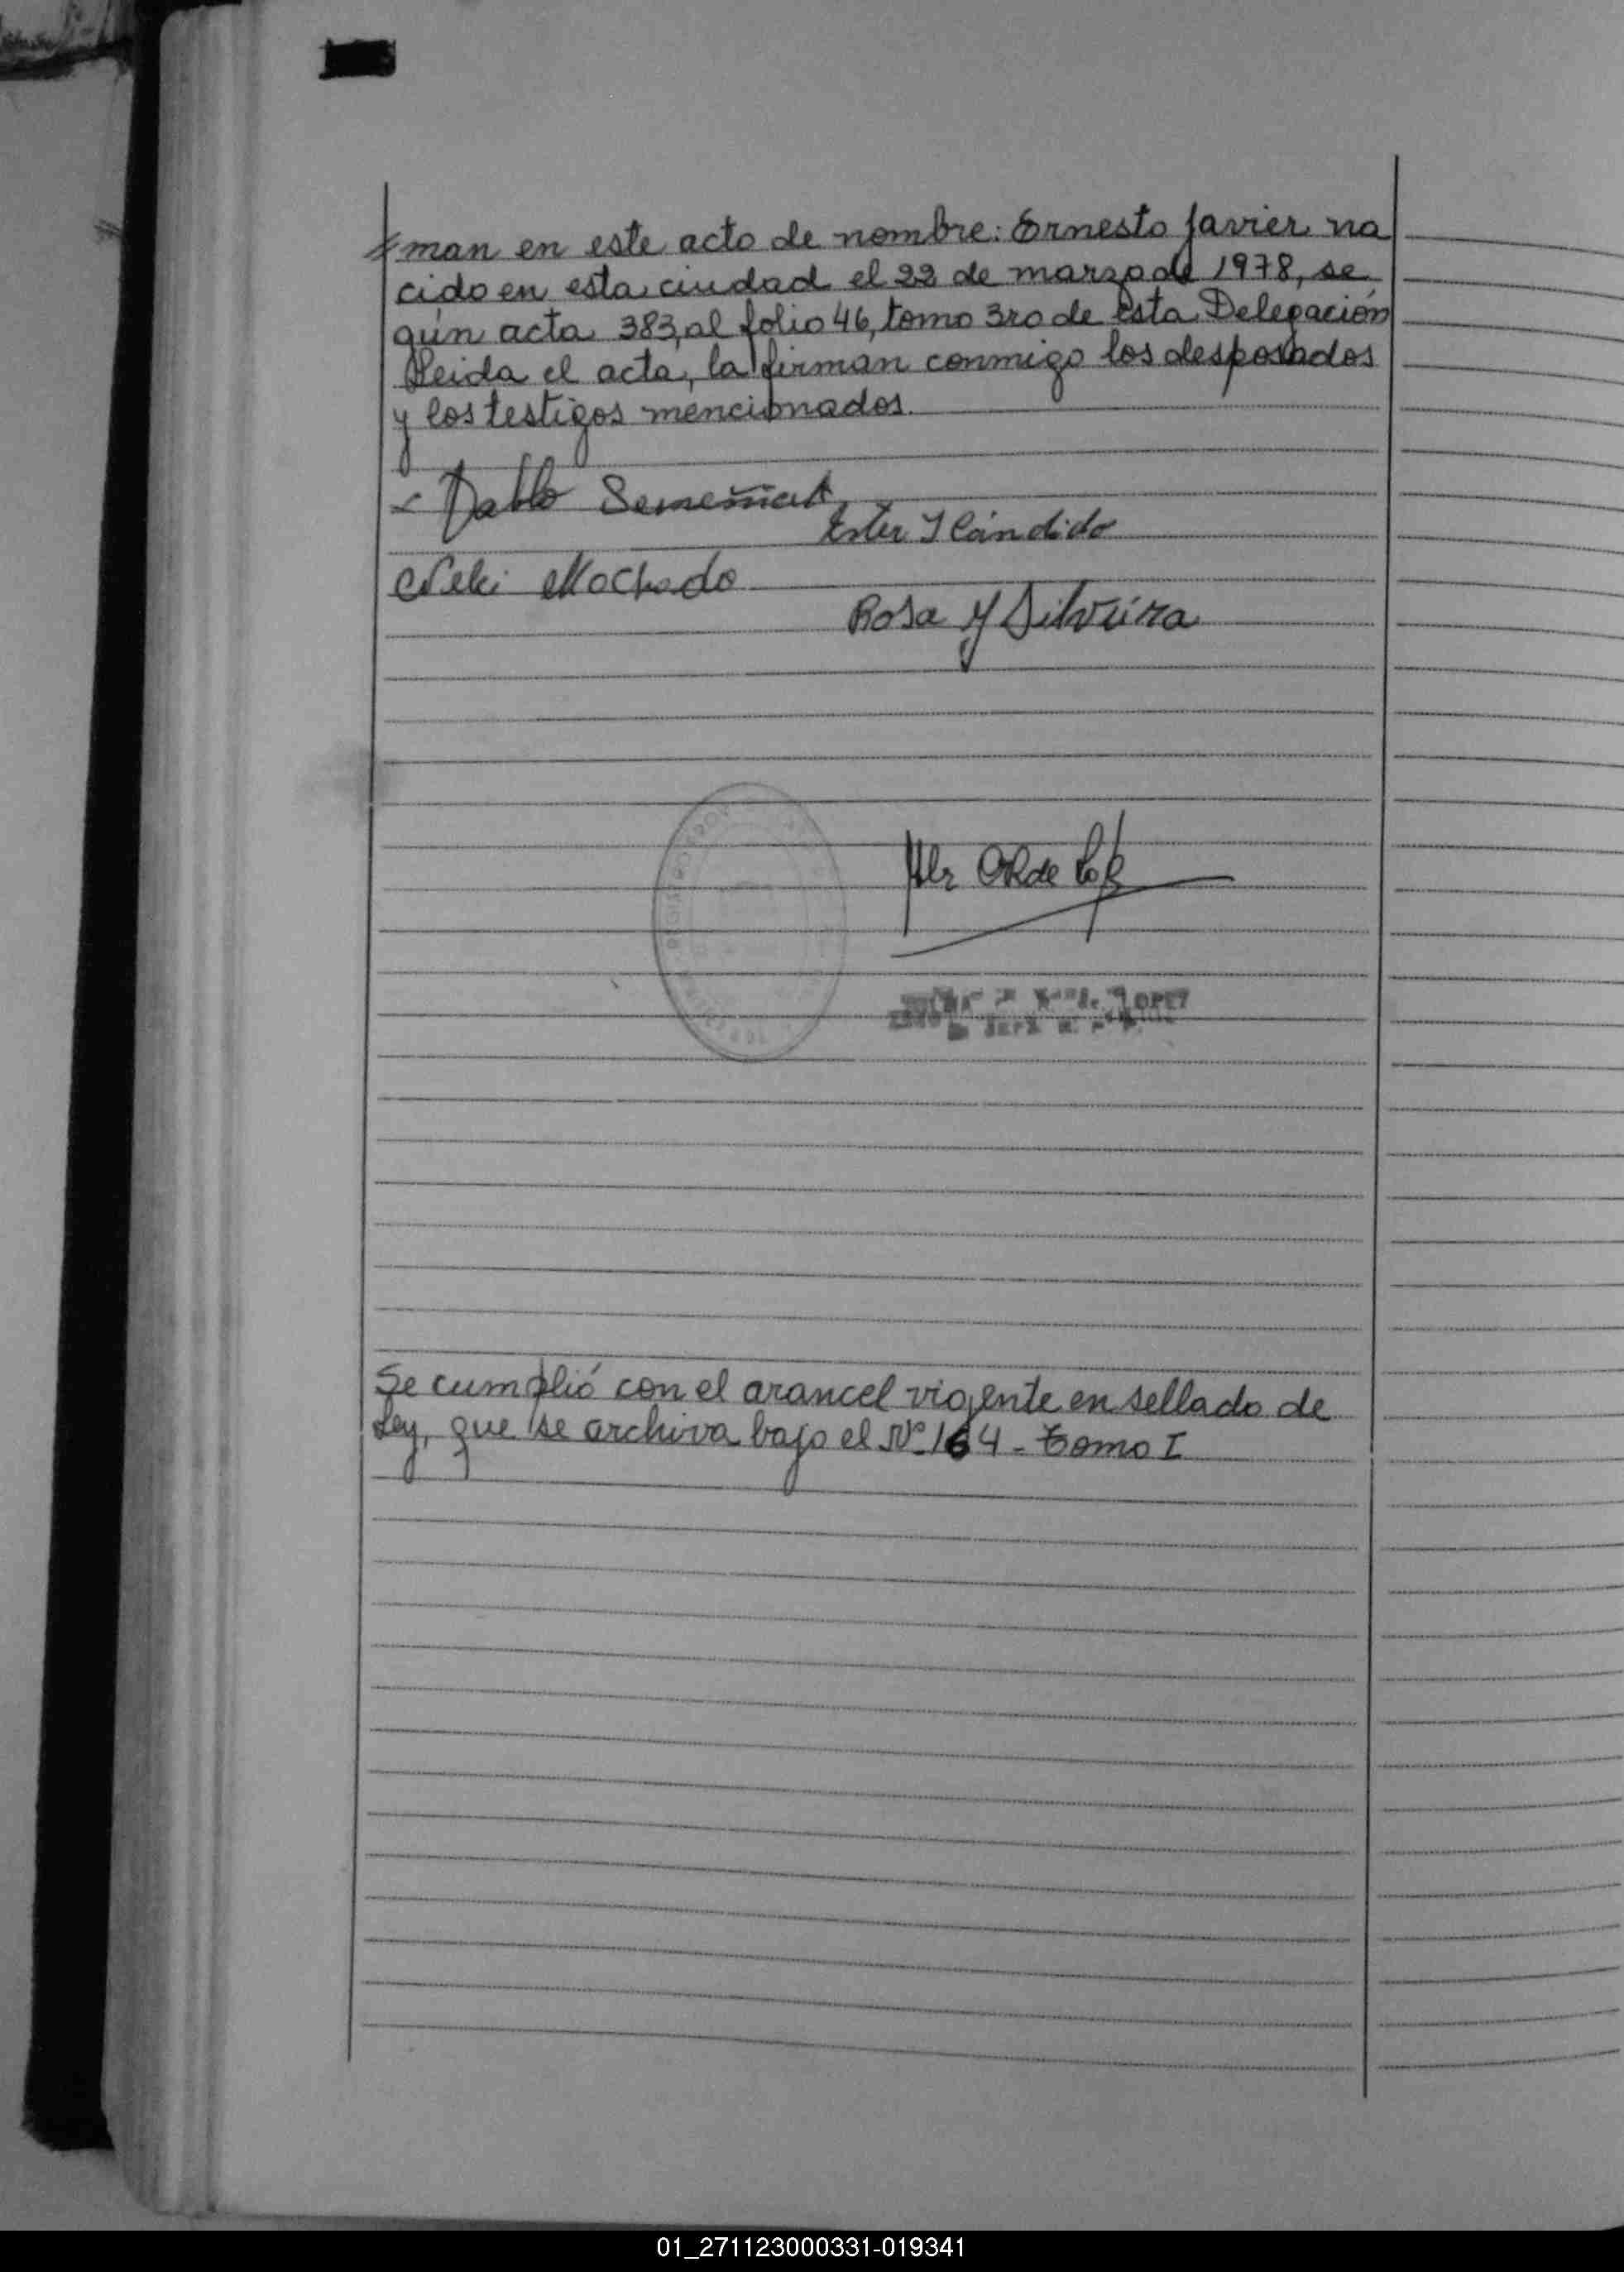 man en este acto de nombre: Ernesto Javier na
cido en esta ciudad el 22 de marzo de 1978, se
gún acta 383, al folio 46, tomo 3ro de esta Delegación
Leida el acta, la firman conmigo los desposados
y los testigos mencionados.
Pablo
Ester Y Cándido
Neli Machado
Rosa Y Silveira
LOPEZ
Se cumplió con el arancel vigente en sellado de
Ley, que se archiva bajo el Nº 164 - Tomo I
01_271123000331-019341